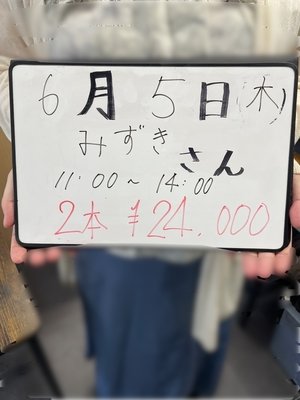 6月5日(木)
みずきさん
11:00~14:00
2本 ¥24.000